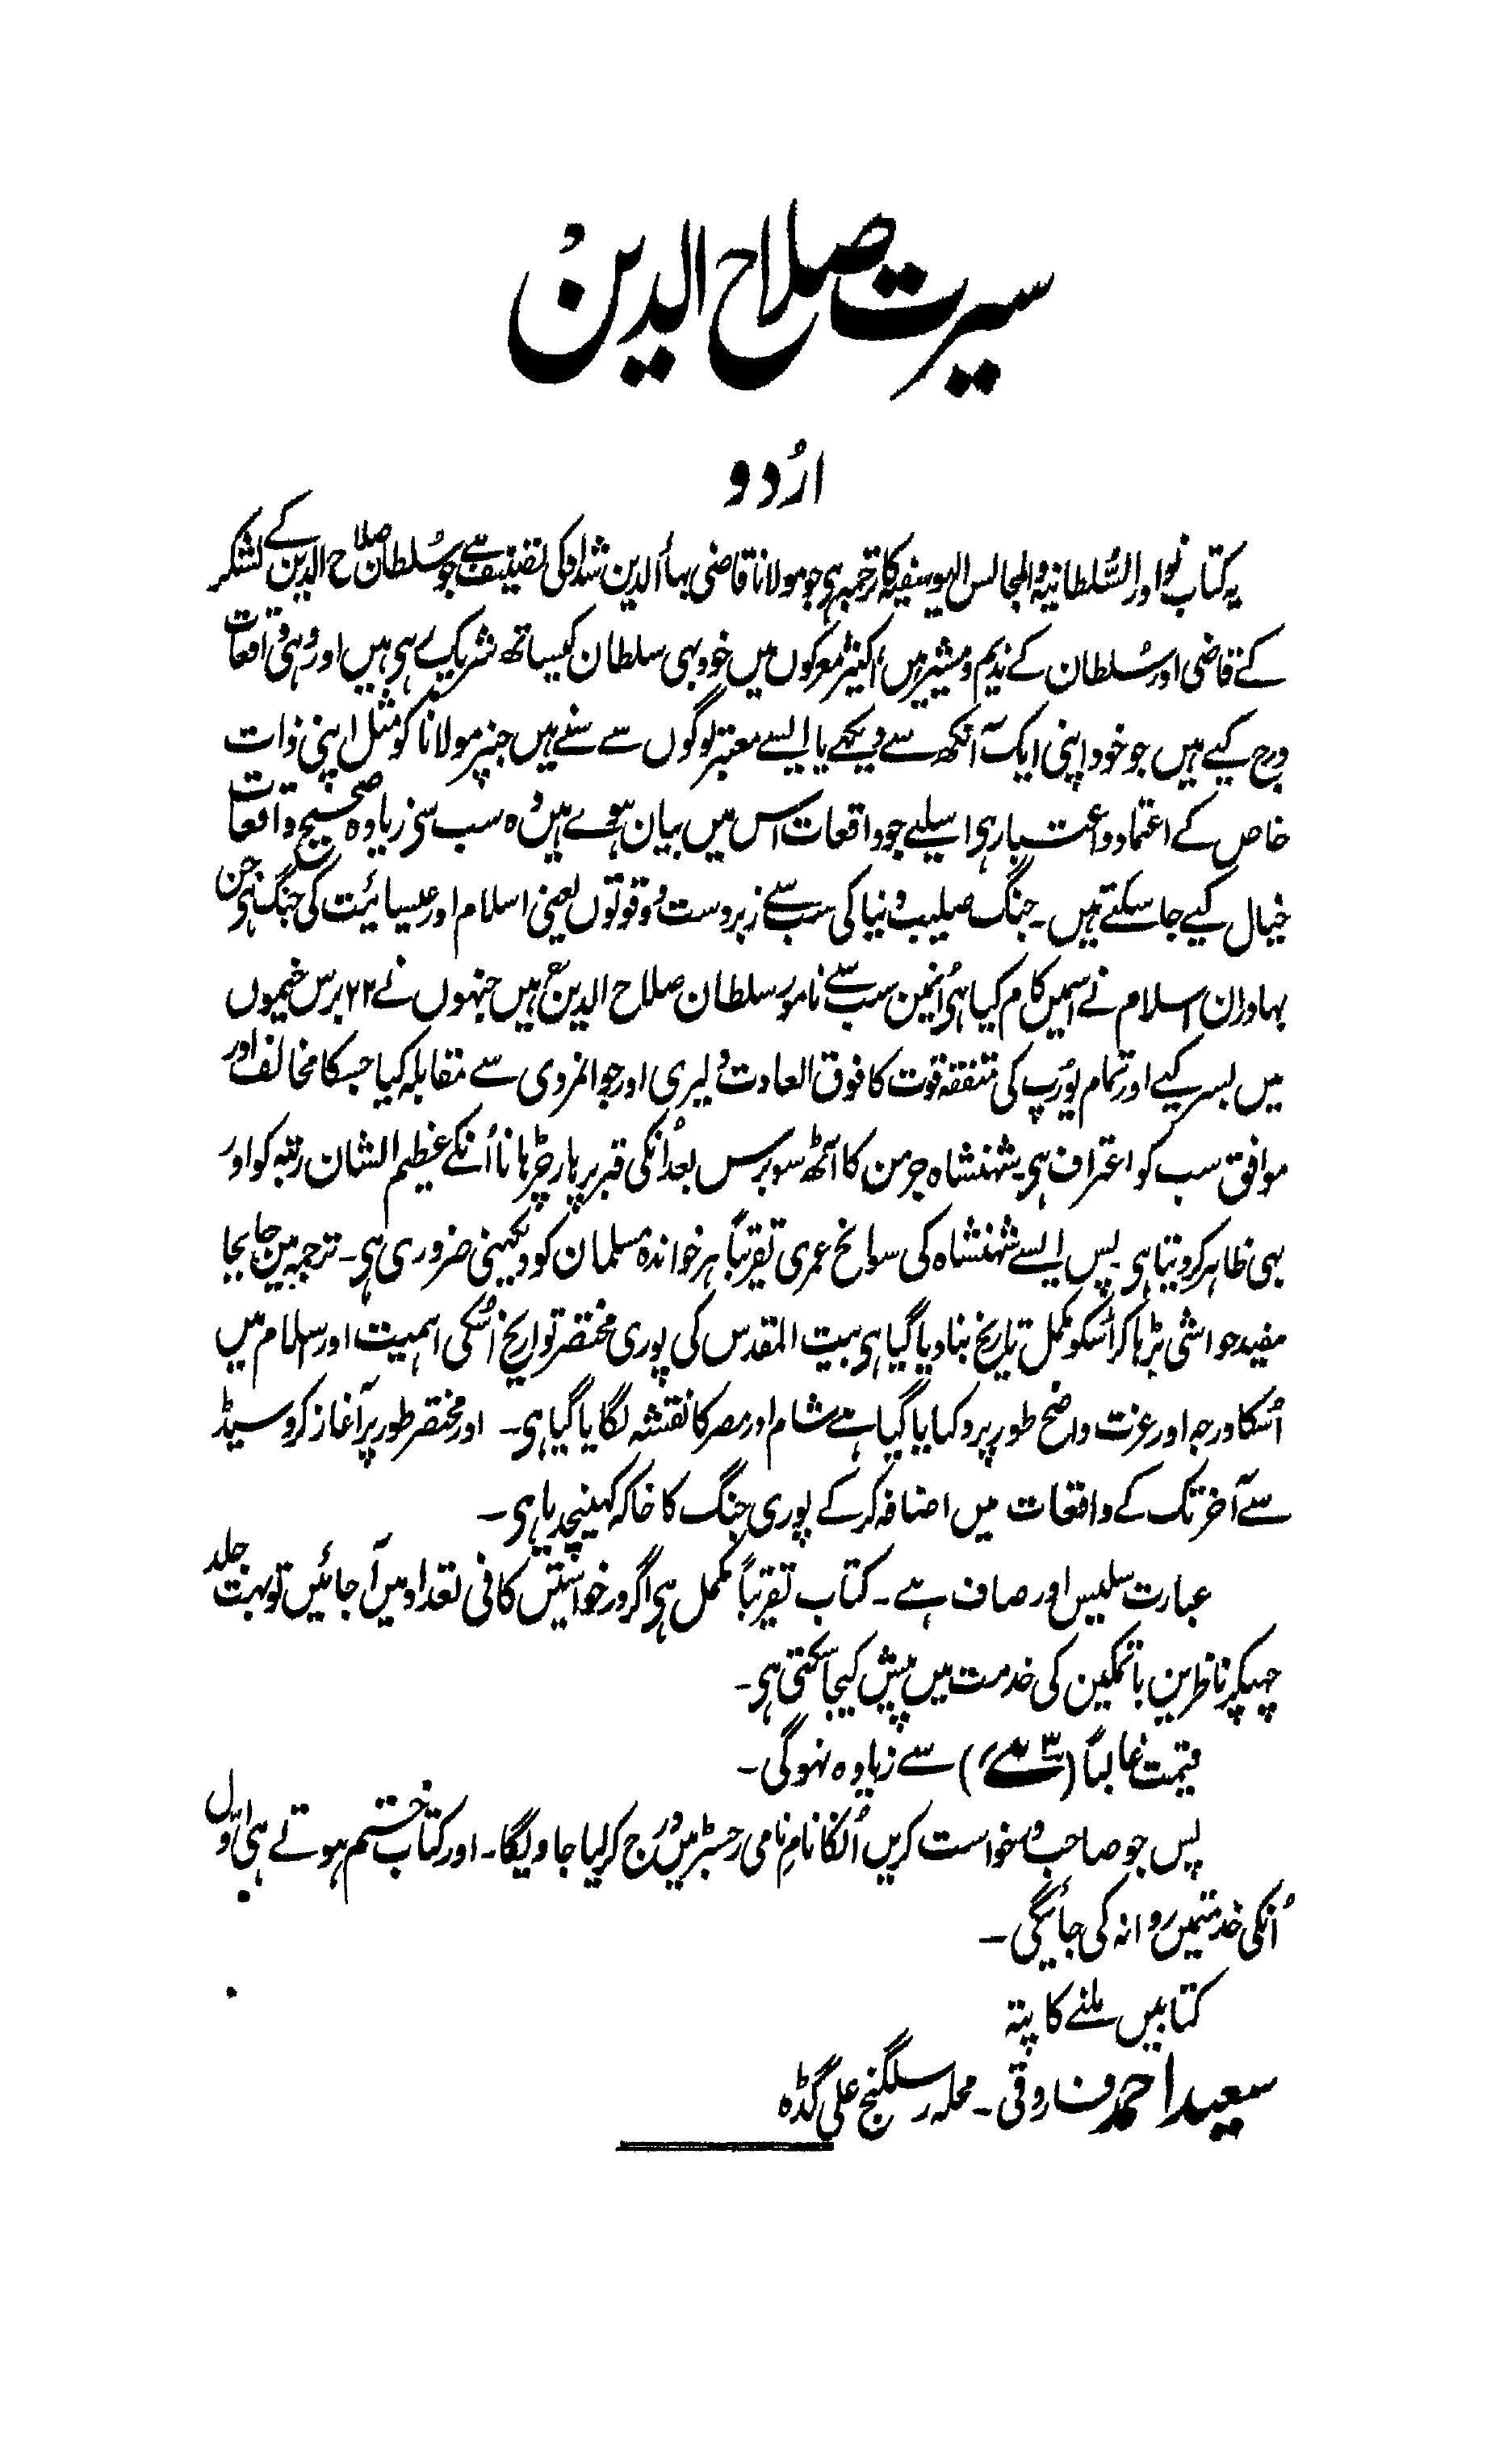 سیرت صلاح الدین
اردو
یہ کتاب نوادر السلطانیہ والمجالس الیوسفیہ کا ترجمہ ہی جو مولانا قاضی بہاؤ الدین شداد کی تصنیف ہے جو سلطان صلاح الدین کے لشکر
کے قاضی اور سلطان کے ندیم و مشیر ہیں، اکثر معرکوں میں خود بہی سلطان کیساتھ شریک رہے ہی ہیں اور وہی واقعات
درج کیے ہیں جو خود اپنی ایک آنکھ سے دیکھے یا ایسے معتبر لوگوں سے سنے ہیں جنپر مولانا کو مثل اپنی ذات
خاص کے اعتماد و اعتبار ہی اسلیے جو واقعات اس میں بیان ہوے ہیں وہ سب سی زیادہ صحیح واقعات
خیال کیے جا سکتے ہیں۔ جنگ صلیب دنیا کی سب سے زبردست دو قوتوں یعنی اسلام اور عیسائیت کی جنگ ہی جن
بہادران اسلام نے اسمیں کام کیا ہی اُنمین سب سے نامور سلطان صلاح الدین ہیں جنہوں نے ۲۲ برس خیموں
میں بسر کیے اور تمام یورپ کی متفقہ قوت کا فوق العادت دلیری اور جوانمردی سے مقابلہ کیا جسکا مخالف اور
موافق سب کو اعتراف ہی۔ شہنشاہ جرمن کا آٹھ سو برس بعد اُنکی قبر پر ہار چڑہانا اُنکے عظیم الشان رتبہ کو اور
بہی ظاہر کر دیتا ہی پس ایسے شہنشاہ کی سوانح عمری تقریباً ہر خواندہ مسلمان کو دیکہنی ضروری ہی۔ ترجمہ مین جابجا
مفید حواشی بڑہا کر اُسکو مکمل تاریخ بنا دیا گیا ہی بیت المقدس کی پوری مختصر تواریخ اُسکی اہمیت اور اسلام میں
اُسکا درجہ اور عزت واضح طور پر دکہایا گیا ہے شام اور مصر کا نقشہ لگایا گیا ہی۔ اور مختصر طور پر آغاز کروسیڈ
سے آخر تک کے واقعات میں اضافہ کر کے پوری جنگ کا خاکہ کہینچدیا ہی۔
عبارت سلیس اور صاف ہے۔ کتاب تقریباً مکمل ہی اگر درخواستیں کافی تعداد میں آجائیں تو بہت جلد
چہپکر ناظرین باتمکین کی خدمت میں پیش کیجا سکتی ہی۔
قیمت غالباً ( ) سے زیادہ نہوگی۔
پس جو صاحب درخواست کریں اُنکا نام نامی رجسٹر میں درج کر لیا جاویگا۔ اور کتاب ختم ہوتے ہی اول
اُنکی خدمتمیں روانہ کی جائیگی۔
کتابیں ملنے کا پتہ
سعید احمد فاروقی۔ محلہ رسلگنج علی گڈہ